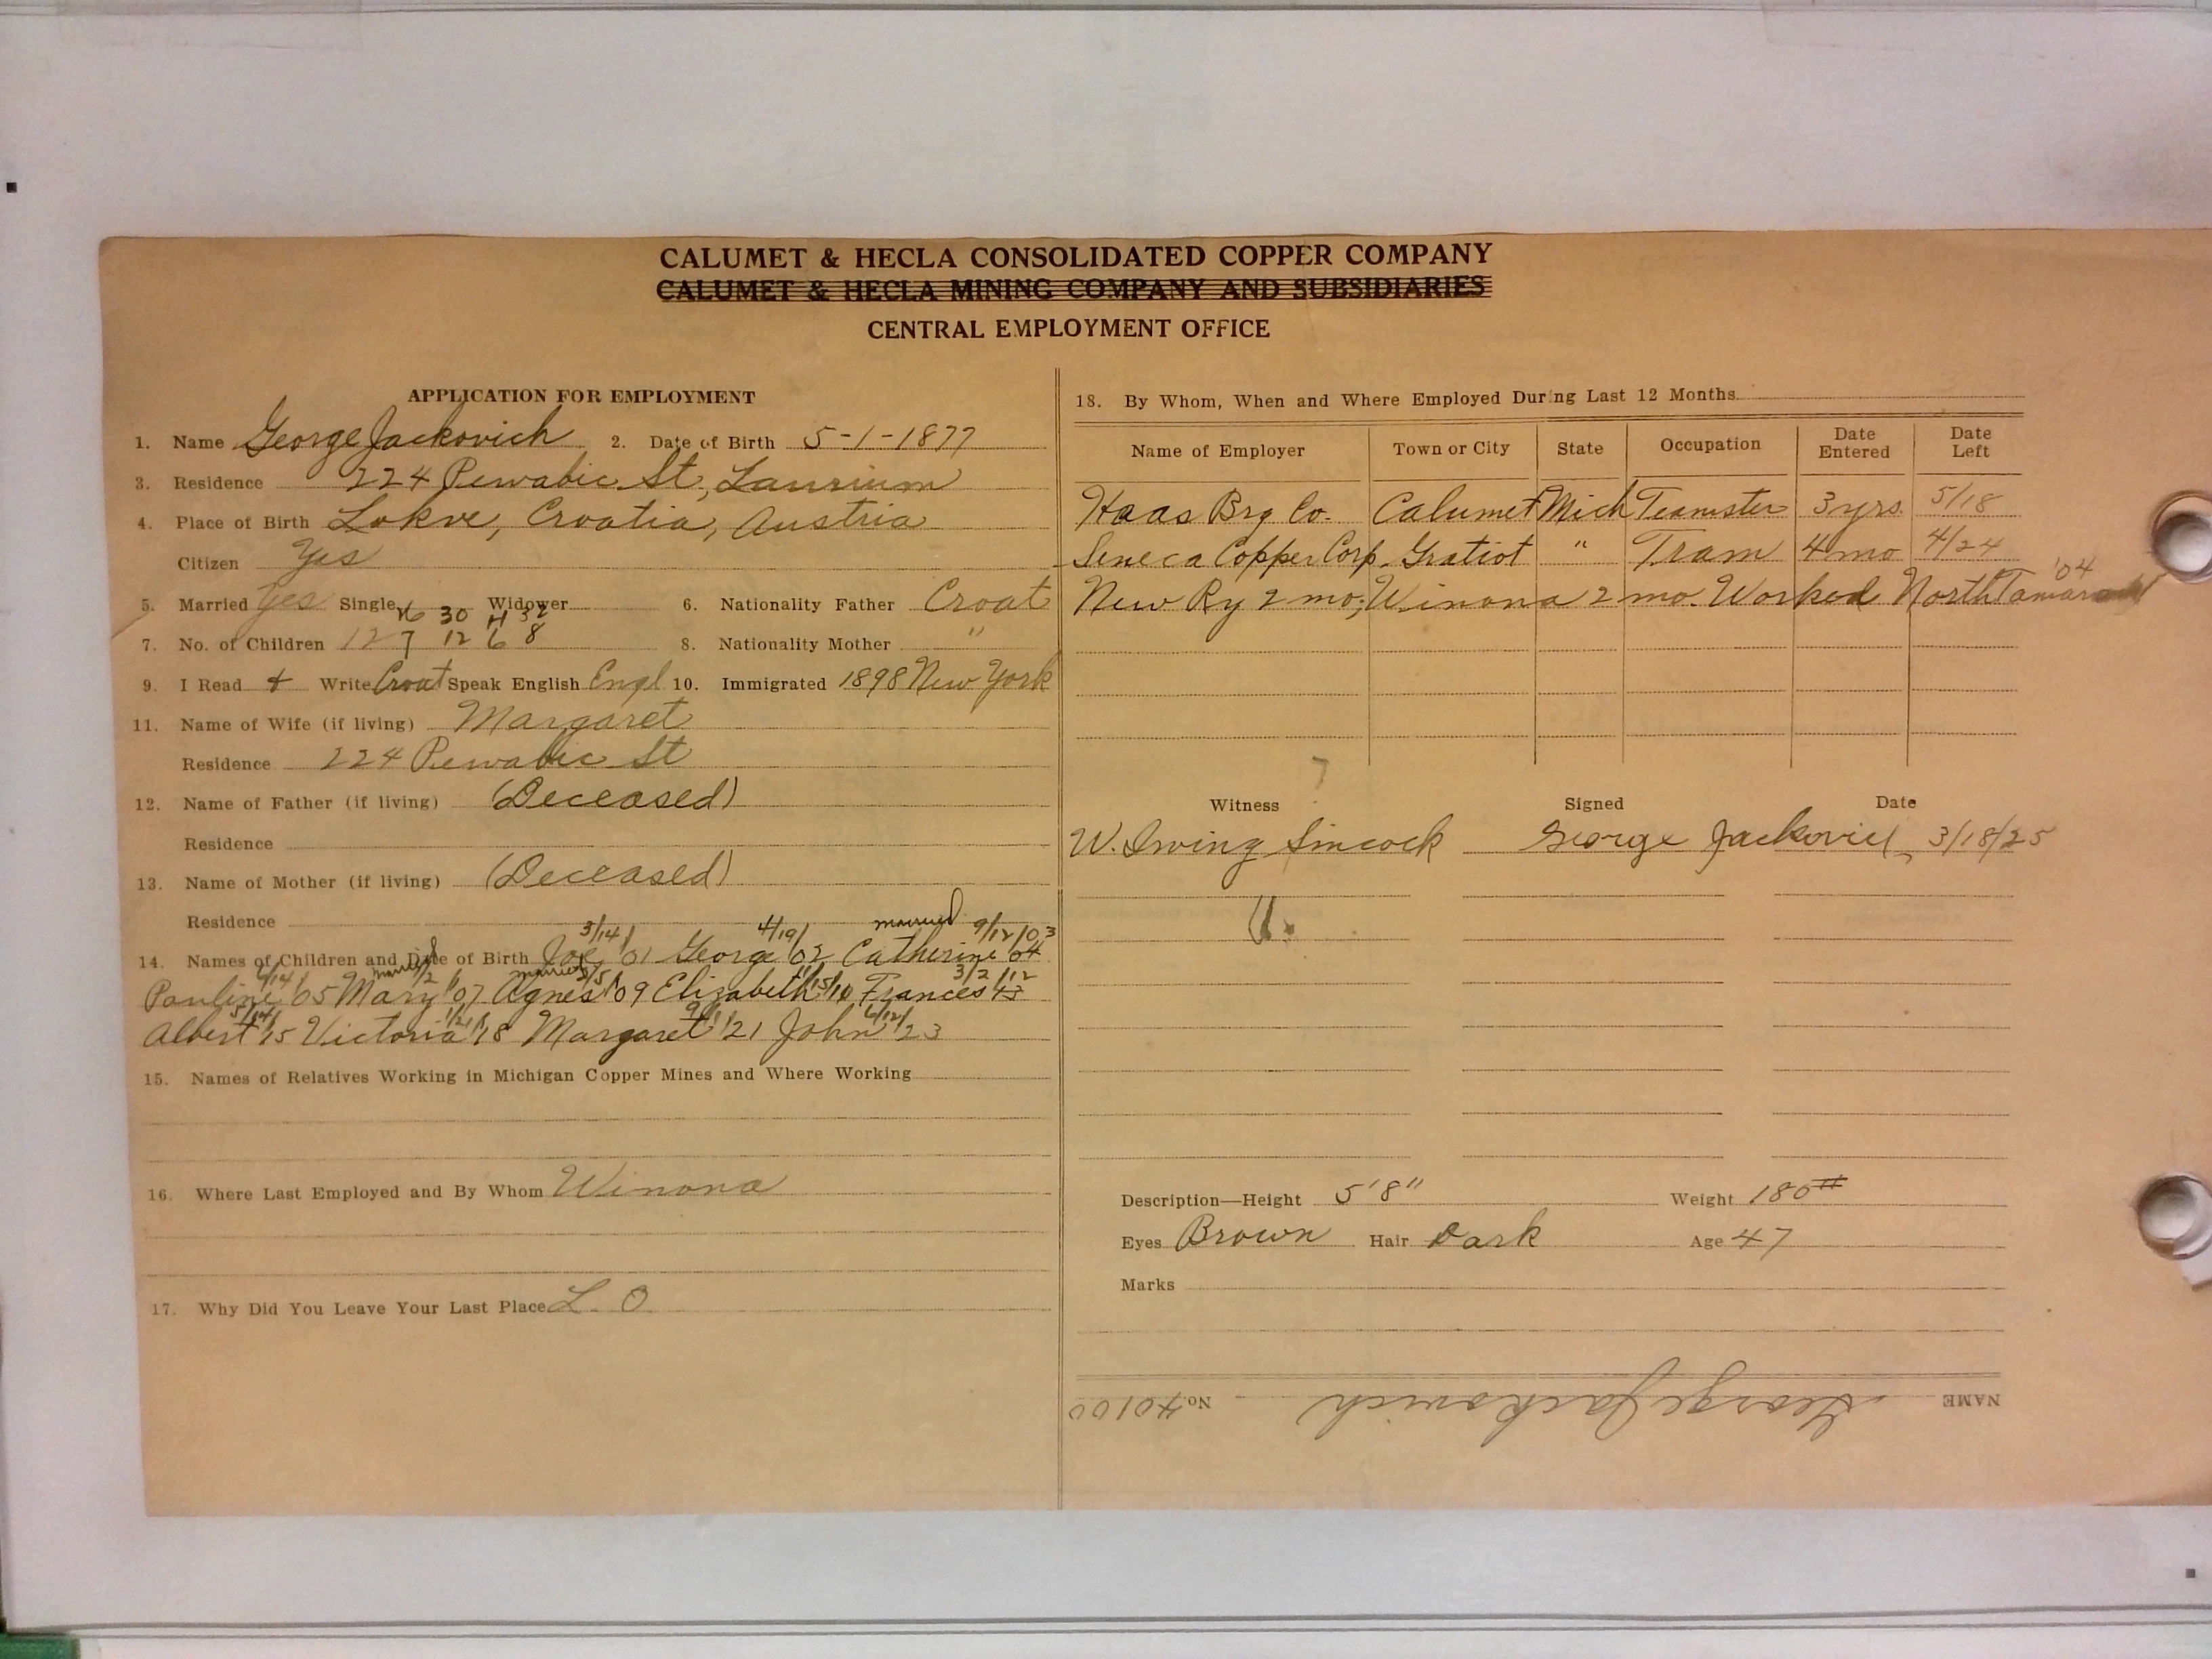 CALUMET & HECLA CONSOLIDATED COPPER COMPANY
CALUMET & HECLA MINING COMPANY AND SUBSIDIARIES
CENTRAL EMPLOYMENT OFFICE
APPLICATION FOR EMPLOYMENT
1. Name George Jackovich 2. Date of Birth 5-1-1877
3. Residence 224 Pewabic St, Laurium
4. Place of Birth Lokve, Croatia, Austria
Citizen Yes
5. Married Yes Single Widower 6. Nationality Father Croat
30 H 32
7. No. of Children 12 7 12 6 8 8. Nationality Mother "
9. I Read + Write Croat Speak English Engl 10. Immigrated 1898 New York
11. Name of Wife (if living) Margaret
Residence 224 Pewabic St
12. Name of Father (if living) (Deceased)
Residence
13. Name of Mother (if living) (Deceased)
Residence
3/14/ 4/19/ married 9/12/03
14. Names of Children and Date of Birth Joe '01 George '02 Catherine 04
married married 3/2/12
Pauline '05 Mary '07 Agnes '09 Elizabeth 10 Frances 13
Albert '15 Victoria '18 Margaret '21 John '23
15. Names of Relatives Working in Michigan Copper Mines and Where Working
16. Where Last Employed and By Whom Winona
17. Why Did You Leave Your Last Place L. O.
18. By Whom, When and Where Employed During Last 12 Months
Name of Employer Town or City State Occupation Date Entered Date Left
Haas Brg Co. Calumet Mich Teamster 3 yrs. 5/18
Seneca Copper Corp. Gratiot " Tram 4 mo 4/24
New Ry 2 mo; Winona 2 mo. Worked North Tamarack '04
Witness Signed Date
W. Irving Sincock George Jackovich 3/18/25
Description—Height 5'8" Weight 180#
Eyes Brown Hair Dark Age 47
Marks
NAME George Jackovich No. 40100